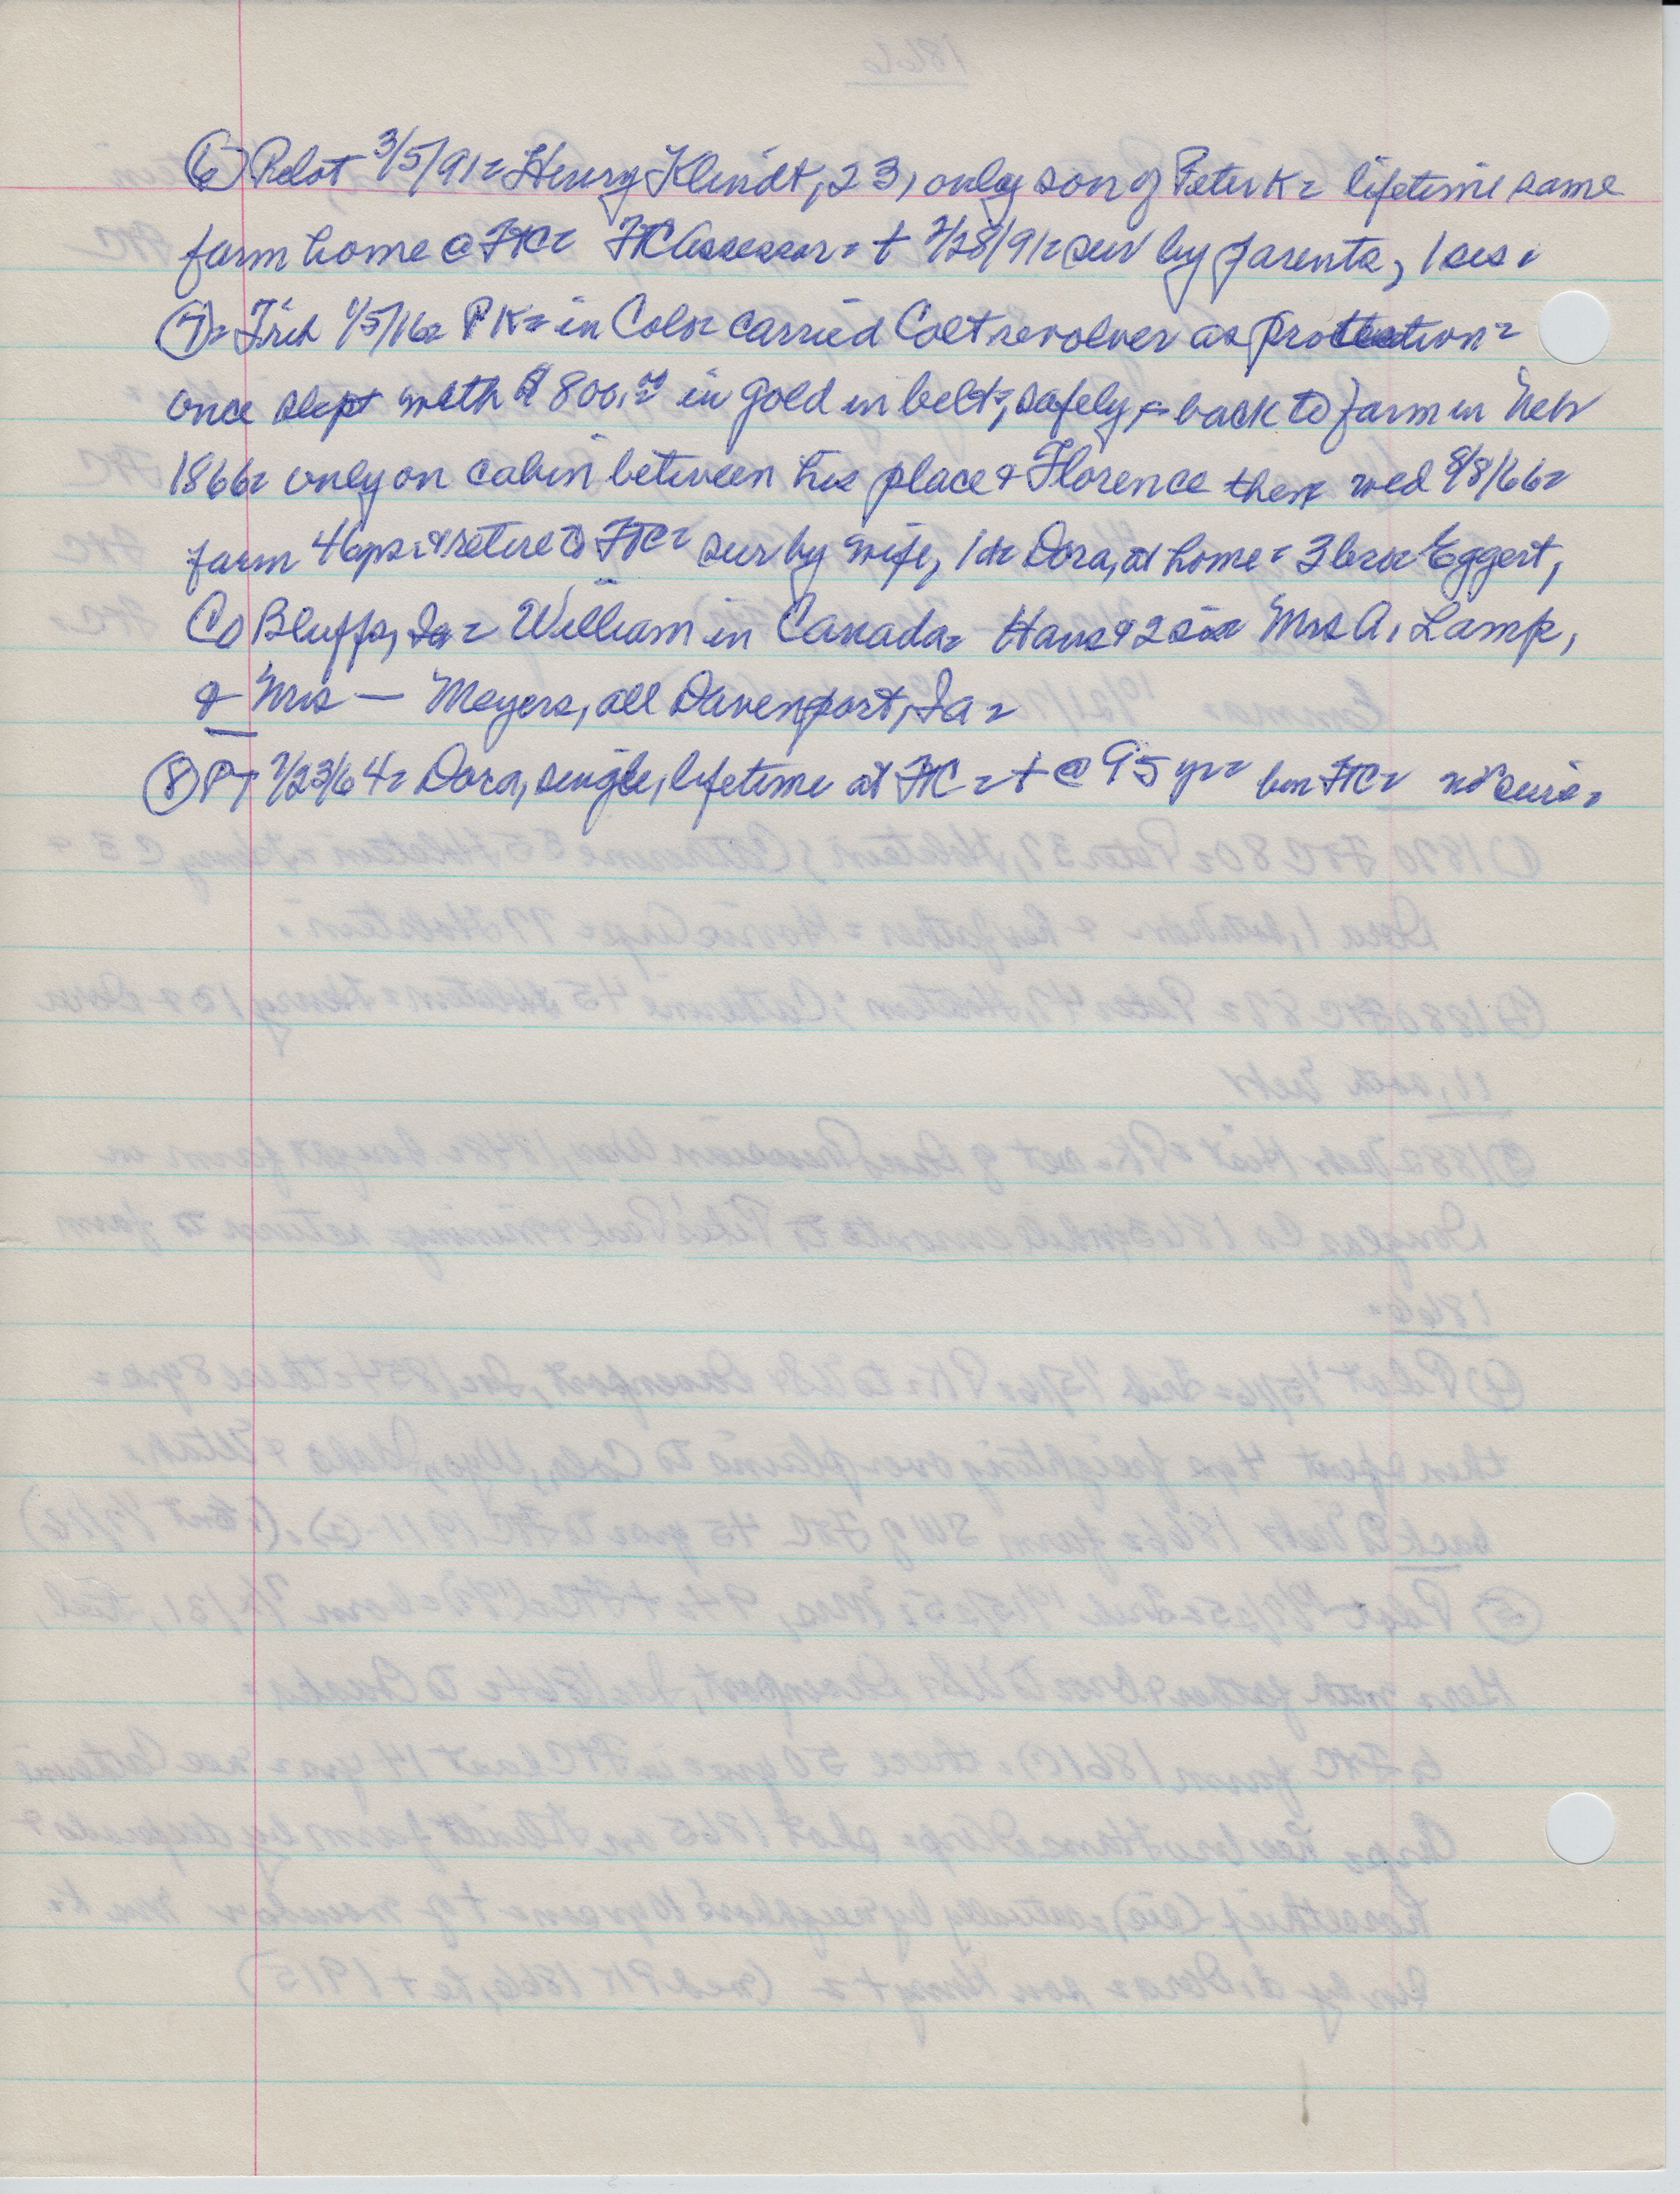 ⑥ Pilot 3/5/91= Henry Klindt, 23, only son of Peter K= lifetime same
farm home @ FtC= FtC Assessor= † 2/28/91= sur by parents, 1 sis.
⑦= Trib 1/5/16= PK= in Colo= carried Colt revolver as protection=
once slept with $800.00 in gold in belt, safely,= back to farm in Nebr
1866= only on cabin between his place & Florence then wed 8/8/66=
farm 46yrs & retire to FtC= sur by wife, 1 d= Dora, at home= 3 bro= Eggert,
Co Bluffs, Ia= William in Canada= Hans & 2 sis= Mrs A. Lamp,
& Mrs — Meyers, all Davenport, Ia=
⑧ PT 7/23/64= Dora, single, lifetime at FtC= † @ 95 yr= bn FtC= no surv.